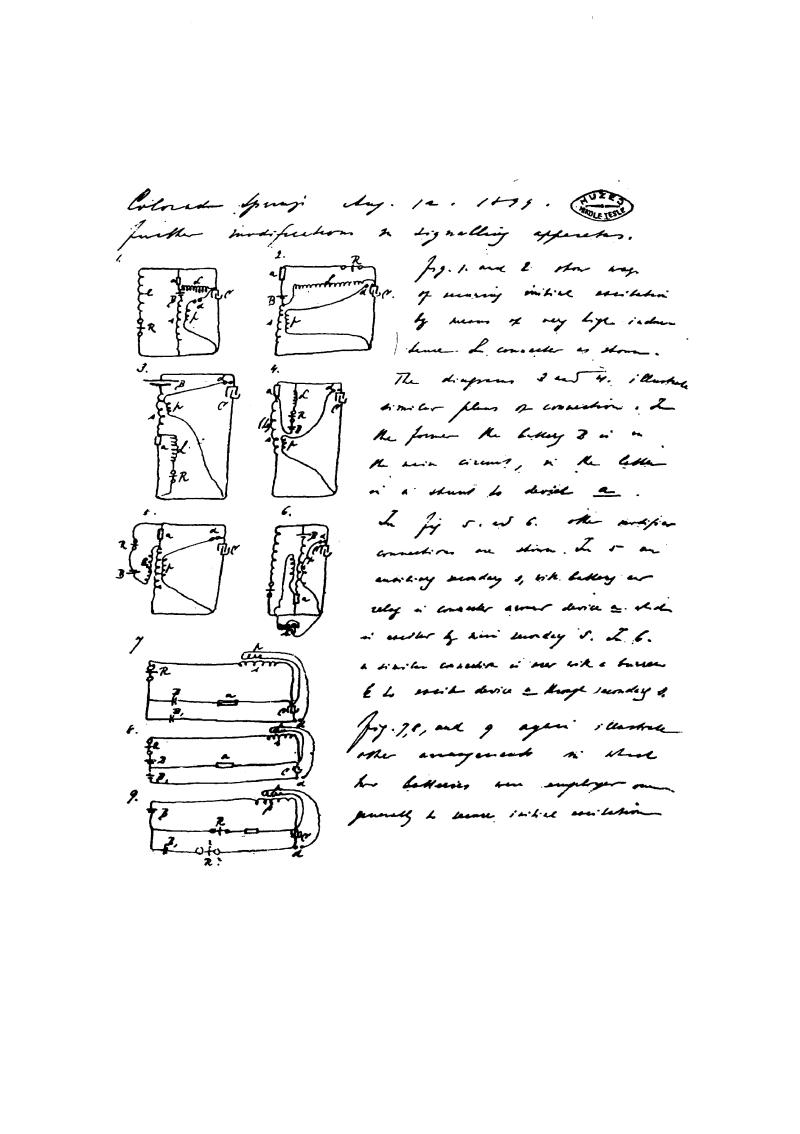 Colorado Springs Aug. 12. 1899.
MUZEJ
NIKOLE TESLE
Further modifications in signalling apparatus.
Fig. 1. and 2 show ways
of securing initial excitation
by means of very high induc
tance L connected as shown.
The diagrams 3 and 4. illustrate
similar plans of connection. In
the former the battery B is in
the main circuit, in the latter
in a shunt to device a.
In fig 5. and 6. other modified
connections are shown. In 5 an
auxiliary secondary s, with battery and
relay is connected around device a which
is excited by main secondary S. In 6.
a similar connection is used with a
to excite device a through secondary s.
Fig. 7, 8, and 9 again illustrate
other arrangements in which
two batteries were employed one
generally to secure initial excitation
1.
L
a
B
s
p
d
c
R
2.
R
a
L
B
s
p
d
c
3.
B
d
c
s
p
a
L
R
4.
a
L
R
B
s
p
d
c
5.
R
B
a
p
d
c
6.
B
d
c
a
7
R
p
s
B
a
B1
c
d
8.
R
B
B1
a
c
d
9.
B
R
B1
R2
p
c
d